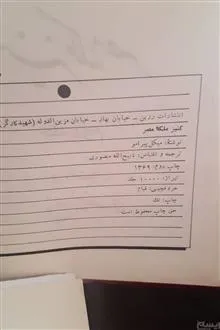 انتشارات زرین ـ خیابان بهار ـ خیابان مزین الدوله (شهید کارگر
کنیز ملکه مصر
نوشته: میکل پیرامو
ترجمه و اقتباس: ذبیح‌الله منصوری
چاپ دوم: ۱۳۶۹
تیراژ: ۱۰۰۰۰ جلد
حروفچینی: گیام
چاپ: تک
حق چاپ محفوظ است